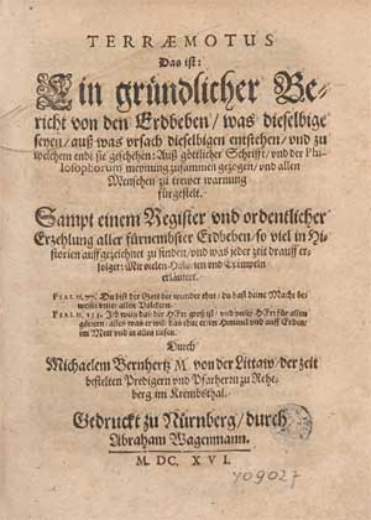 TERRÆMOTUS
Das ist:
Ein gründlicher Be-
richt von den Erdbeben/ was dieselbige
seyen/ auß was vrsach dieselbigen entstehen/ vnd zu
welchem endt sie geschehen: Auß göttlicher Schrifft/ vnd der Phi-
losophorum meynung zusammen gezogen/ vnd allen
Menschen zu trewer warnung
fürgestelt.
Sampt einem Register vnd ordentlicher
Erzehlung aller fürnembster Erdbeben/ so viel in Hi-
storien auffgezeichnet zu finden/ vnd was jeder zeit drauff er-
folget: Mit vielen Historien vnd Exempeln
erläutert.
PSALM. 77. Du bist der Gott der wunder thut/ du hast deine Macht be-
weiset vnter allen Völckern.
PSALM. 135. Ich weiß daß der HErr groß ist/ vnd vnser HErr für allen
göttern/ alles was er wil/ das thut er/ im Himmel vnd auff Erden/
im Meer vnd in allen tiefen.
Durch
Michaelem Bernhertz M. von der Littaw/ der zeit
bestelten Predigern vnd Pfarherrn zu Rehe-
berg im Krembsthal.
Gedruckt zu Nürnberg/ durch
Abraham Wagenmann.
M. DC. XVI.
409027